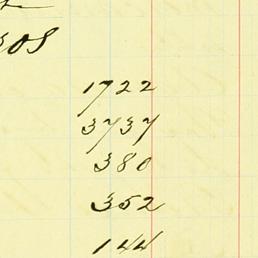 1722
3737
380
352
144